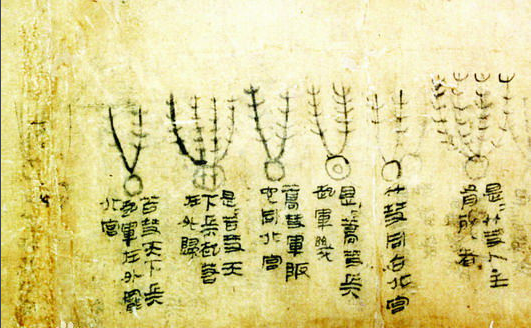 是=竹彗人主
有死者
竹彗同占北宮
是=蒿彗兵
起軍幾
蒿彗軍阪
它同北宮
是苫彗天
下兵起若
在外歸
苫彗天下兵
起軍在外罷
北宮